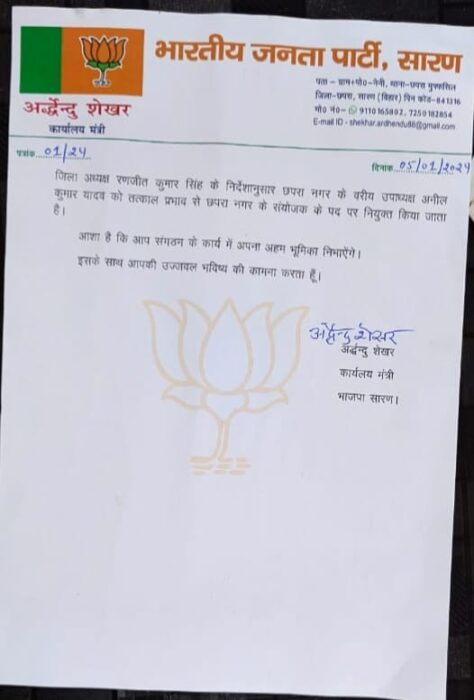 भारतीय जनता पार्टी, सारण
अर्द्धेन्दु शेखर
कार्यालय मंत्री
पता – ग्राम+पो०-नैनी, थाना-छपरा मुफ्फसिल
जिला-छपरा, सारण (बिहार) पिन कोड-841316
मो० नं०- 9110165892, 7250182854
E-mail ID - shekhar.ardhendu86@gmail.com
पत्रांक 01/24
दिनांक 05/01/2024
जिला अध्यक्ष रणजीत कुमार सिंह के निर्देशानुसार छपरा नगर के वरीय उपाध्यक्ष अनील
कुमार यादव को तत्काल प्रभाव से छपरा नगर के संयोजक के पद पर नियुक्त किया जाता
है।
आशा है कि आप संगठन के कार्य में अपना अहम भूमिका निभाऐंगे।
इसके साथ आपकी उज्जवल भविष्य की कामना करता हूँ।
अर्द्वेन्दु शेखर
अर्द्धन्दु शेखर
कार्यलय मंत्री
भाजपा सारण।